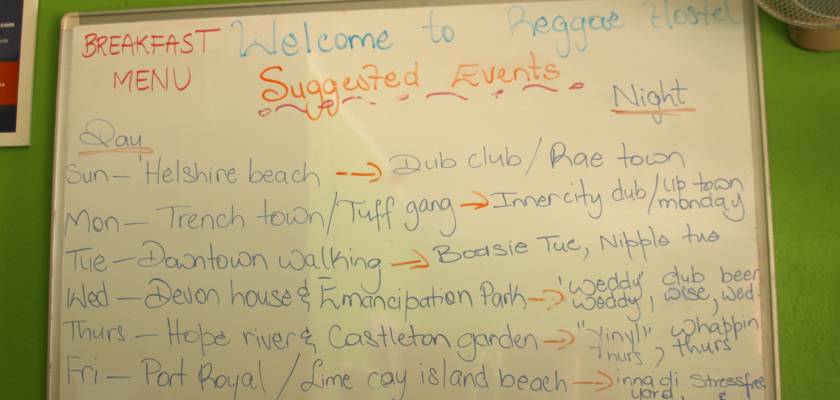 BREAKFAST MENU
Welcome to Reggae Hostel
Suggested Events
Day
Night
Sun — Helshire beach --→ Dub club / Rae town
Mon — Trench town / Tuff gang → Inner city dub / Up town monday
Tue — Downtown walking → Boasie Tue, Nipple tue
Wed — Devon house & Emancipation Park --→ 'Weddy weddy', club beer wise, wed
Thurs — Hope river & Castleton garden → "Vinyl" Thurs, whappin thurs
Fri — Port Royal / Lime cay island beach → inna di yard, Stressfree &
.com